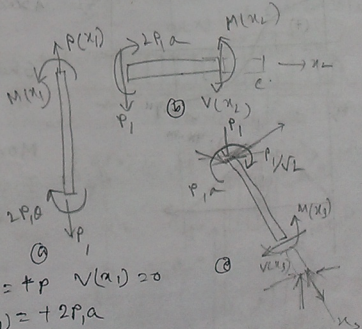 P(x₁)
M(x₁)
2P₁a
P₁
(a)
2P₁a
M(x₂)
P₁
V(x₂)
(b)
x₂
P₁
P₁/√2
P₁a
M(x₃)
V(x₃)
= +P V(x₁) = 0
) = + 2P₁a